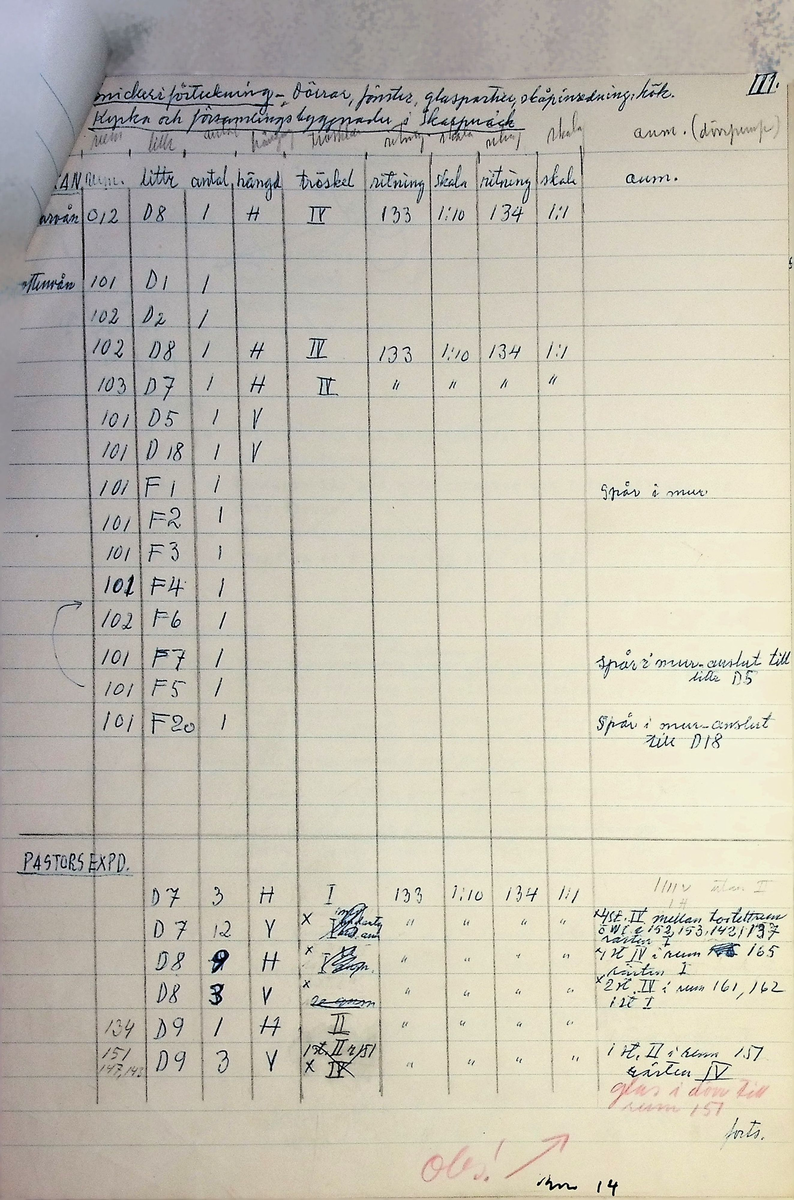 III.
snickeriförteckning - Dörrar, fönster, glaspartier, skåpinredning, kök.
Kyrka och församlingsbyggnader i Skarpnäck
rum littr antal hängd tröskel ritning skala ritning skala anm. (dörrpump)
KAN rum. littr antal hängd tröskel ritning skala ritning skala anm.
012 D8 1 H IV 133 1:10 134 1:1
101 D1 1
102 D2 1
102 D8 1 H IV 133 1:10 134 1:1
103 D7 1 H IV " " " "
101 D5 1 V
101 D18 1 V
101 F1 1 Spår i mur
101 F2 1
101 F3 1
101 F4 1
102 F6 1
101 F7 1 Spår i mur-anslut till
littr D5
101 F5 1
101 F20 1 Spår i mur-anslut
till D18
PASTORSEXPD.
D7 3 H I 133 1:10 134 1:1
D7 12 V x " " " " x 4st. IV mellan
152, 153, 142, 137
resten I
D8 9 H x " " " " x 1 st IV i rum 165
resten I
D8 3 V x " " " " x 2 st. IV i rum 161, 162
1 st I
134 D9 1 H II " " " "
151 D9 3 V 1 st. II r 151 " " " " 1 st. II i rum 151
147, 143 x IV resten IV
glas i dörr till
rum 151
forts.
Obs!
14